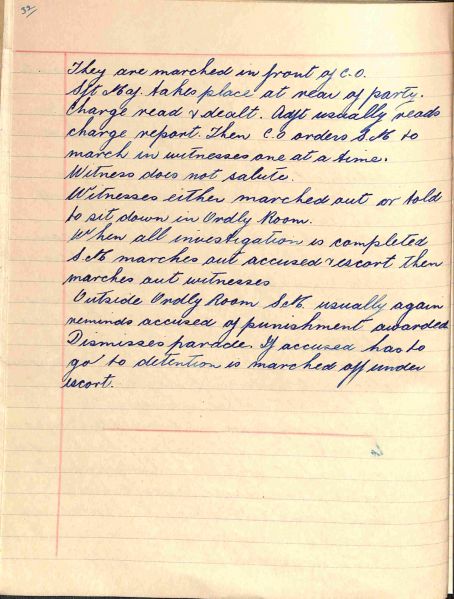 33
They are marched in front of C.O.
Sgt Maj. takes place at rear of party.
Charge read & dealt. Adjt usually reads
charge report. Then C.O orders S.M. to
march in witnesses one at a time.
Witness does not salute.
Witnesses either marched out or told
to sit down in Ordly Room.
When all investigation is completed
S.M. marches out accused & escort then
marches out witnesses
Outside Ordly Room S.M. usually again
reminds accused of punishment awarded
Dismisses parade. If accused has to
go to detention is marched off under
escort.